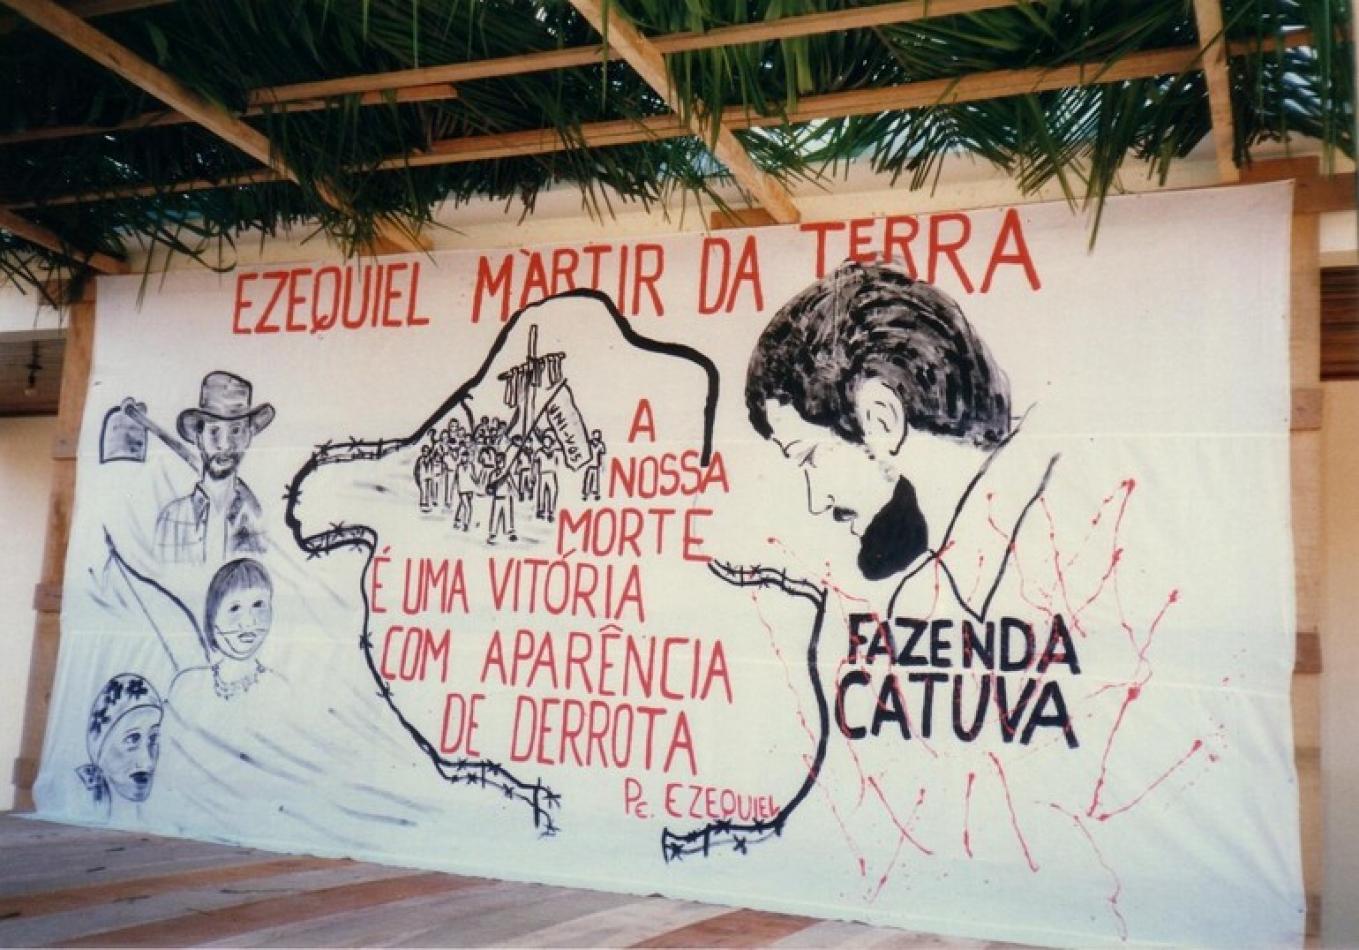 EZEQUIEL MÀRTIR DA TERRA
UNI-VOS
A
NOSSA
MORTE
É UMA VITÓRIA
COM APARÊNCIA
DE DERROTA
PE. EZEQUIEL
FAZENDA
CATUVA